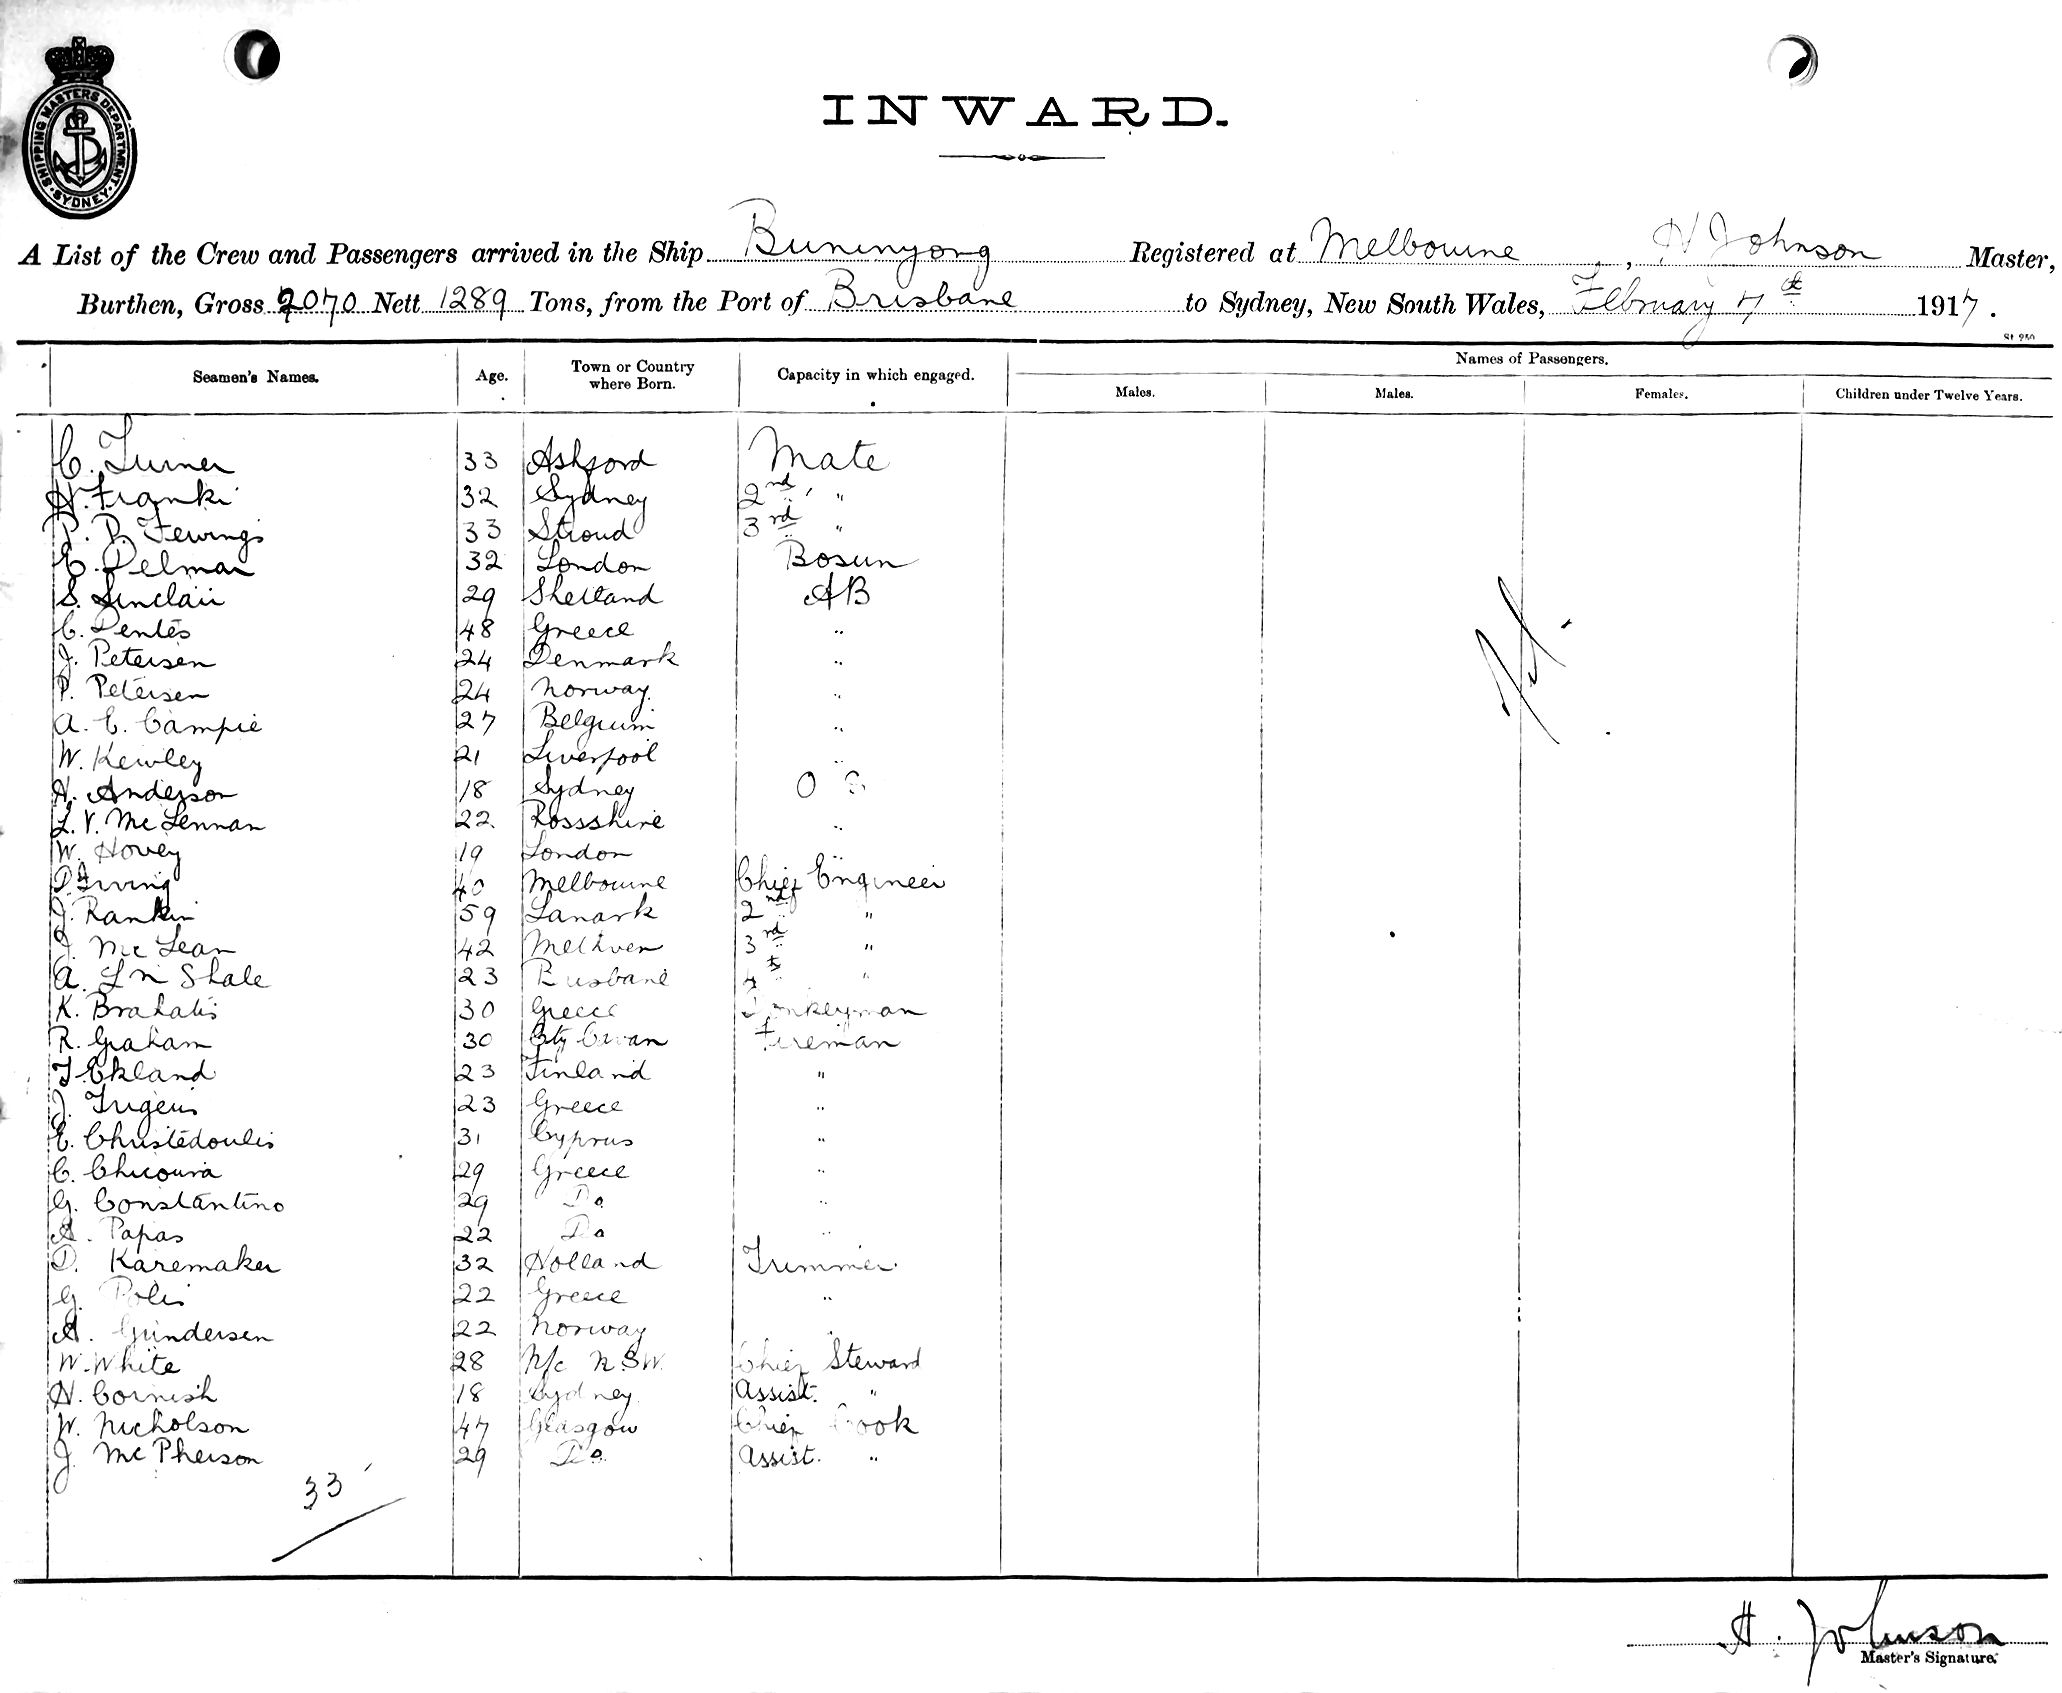 SHIPPING MASTERS DEPARTMENT
SYDNEY
INWARD.
A List of the Crew and Passengers arrived in the Ship Buninyong Registered at Melbourne, H Johnson Master,
Burthen, Gross 2070 Nett 1289 Tons, from the Port of Brisbane to Sydney, New South Wales, February 7th 1917.
Names of Passengers.
Seamen's Names. Age. Town or Country where Born. Capacity in which engaged. Males. Males. Females. Children under Twelve Years.
C. Turner 33 Ashford Mate
H. Franki 32 Sydney 2nd "
P. P. Fewings 33 Stroud 3rd "
E. Delmar 32 London Bosun
S. Sinclair 29 Shetland AB
C. Pentes 48 Greece "
J. Petersen 24 Denmark "
P. Petersen 24 Norway "
A. C. Campie 27 Belgium "
W. Kewley 21 Liverpool "
H. Anderson 18 Sydney O S
L. V. McLennan 22 Rossshire "
W. Hovey 19 London "
D Irving 40 Melbourne Chief Engineer
J. Rankin 59 Lanark 2nd "
J. McLean 42 Methven 3rd "
A. Shale 23 Brisbane 4th "
K. Brahatis 30 Greece Donkeyman
R. Graham 30 Cty Cavan Fireman
J Ekland 23 Finland "
J. 23 Greece "
E. Christedoulis 31 Cyprus "
C. Chicoura 29 Greece "
G. Constantino 29 Do "
A. Papas 22 Do "
D. Karemaker 32 Holland Trimmer
G. Polis 22 Greece "
A. Gundersen 22 Norway
W. White 28 N/c N.S.W. Chief Steward
H. Cornish 18 Sydney Assist. "
W. Nicholson 47 Glasgow Chief Cook
J McPherson 29 Do Assist. "
33
H. Johnson
Master's Signature.